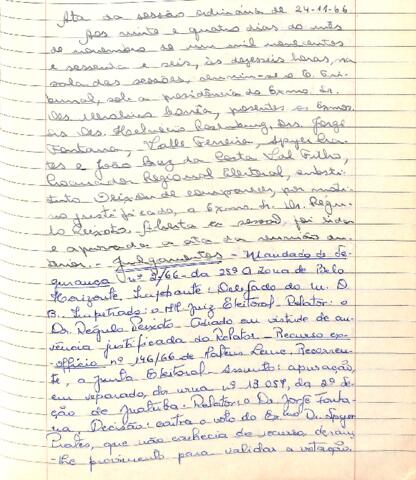 Ata da sessão ordinária de 24-11-66
Aos vinte e quatro dias do mês
de novembro de um mil novecentos
e sessenta e seis, às dezesseis horas, na
sala das sessões, reuniu-se o E. Tri-
bunal, sob a presidência do Exmo. Sr.
Des. presentes os Exmos.
Srs. Des. Drs. Jorge
Fontana, Valle Ferreira,
e João Braz da Costa Val Filho,
Procurador Regional Eleitoral, substi-
tuto. Deixou de comparecer, por moti-
vo justificado, o Exmo. Sr. Dr. Régu-
lo Peixoto. Aberta a sessão, foi lida
e aprovada a ata da reunião an-
terior. - Julgamentos - Mandado de Se-
gurança nº 2/66 - da Zona de Belo
Horizonte. Impetrante: Delegado do M. D.
B. Impetrado: o MM. Juiz Eleitoral - Relator: o
Dr. Régulo Peixoto - Adiado em virtude de au-
sência justificada do Relator - Recurso ex-
officio nº 146/66 de Recorren-
te, a Junta Eleitoral - Assunto: apuração,
em separado, da urna nº 13.059, da 2ª Se-
ção de Juatuba. Relator: o Dr. Jorge Fonta-
na. Decisão: contra o voto do Exmo. Dr.
que não conhecia do recurso, deram-
lhe provimento para validar a votação.